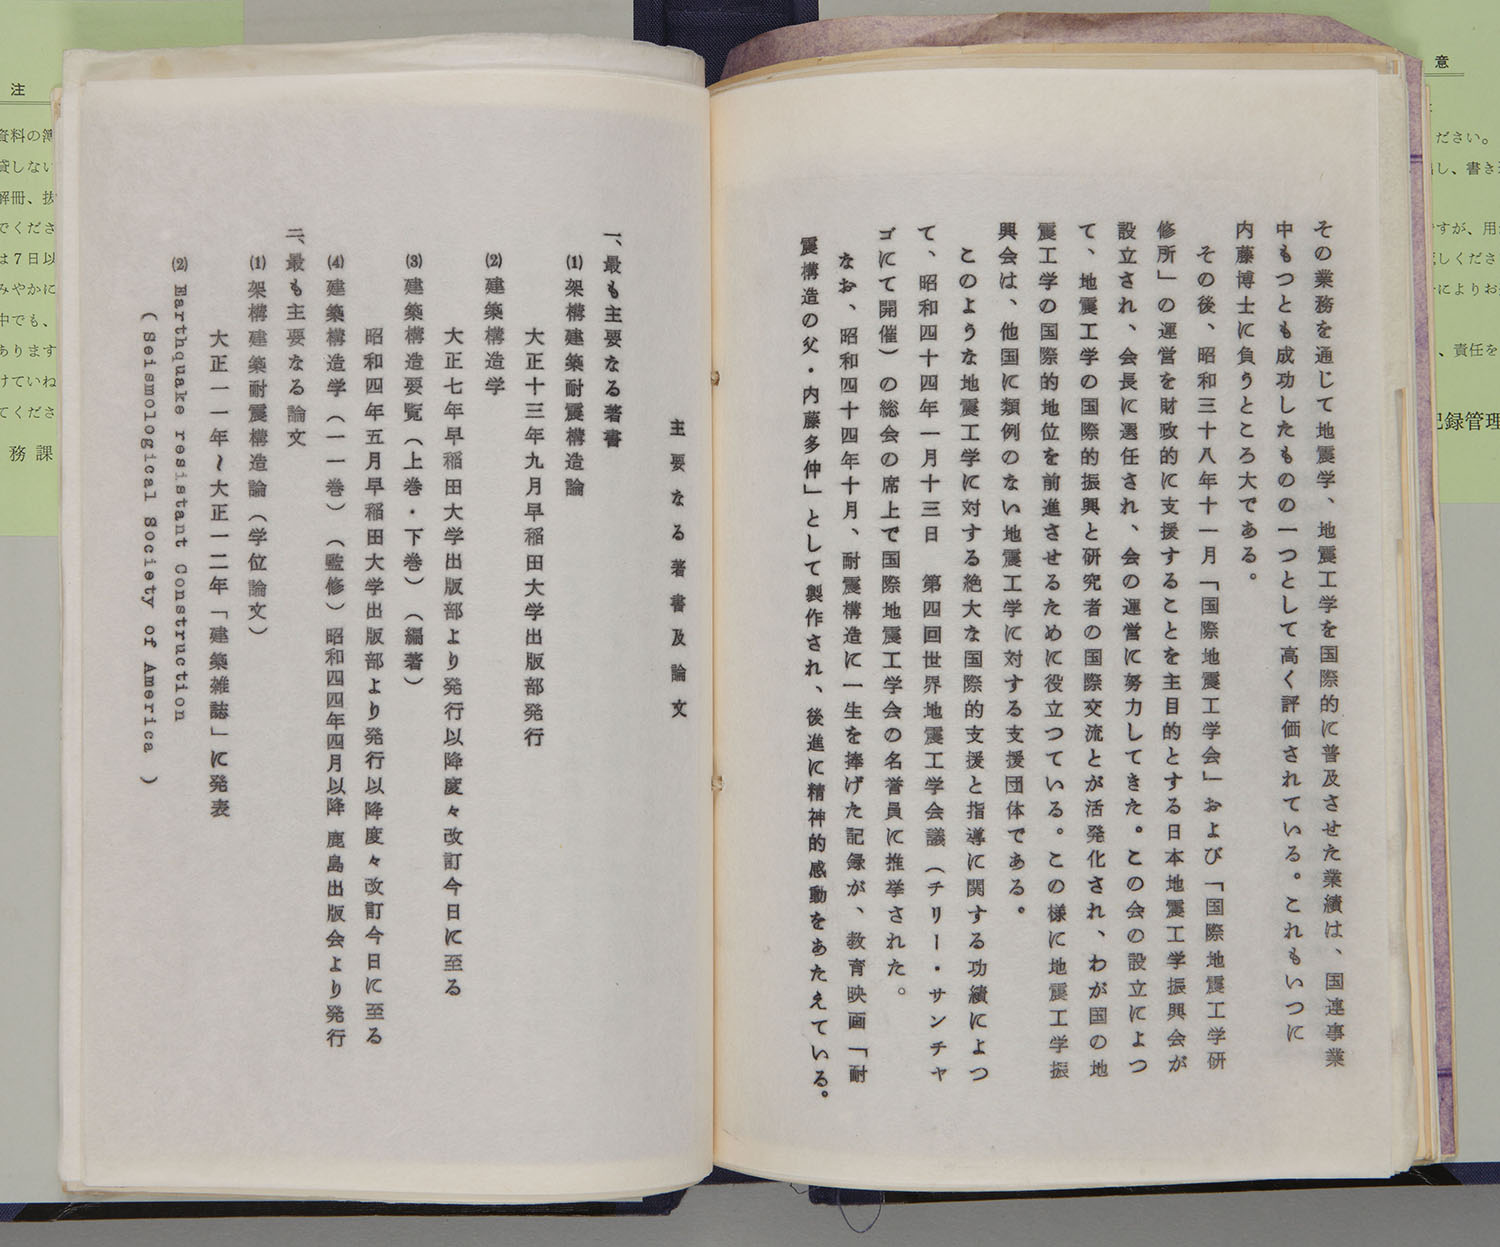 その業務を通じて地震学、地震工学を国際的に普及させた業績は、国連事業
中もつとも成功したものの一つとして高く評価されている。これもいつに
内藤博士に負うところ大である。
その後、昭和三十八年十一月「国際地震工学会」および「国際地震工学研
修所」の運営を財政的に支援することを主目的とする日本地震工学振興会が
設立され、会長に選任され、会の運営に努力してきた。この会の設立によつ
て、地震工学の国際的振興と研究者の国際交流とが活発化され、わが国の地
震工学の国際的地位を前進させるために役立つている。この様に地震工学振
興会は、他国に類例のない地震工学に対する支援団体である。
このような地震工学に対する絶大な国際的支援と指導に関する功績によつ
て、昭和四十四年一月十三日 第四回世界地震工学会議(チリー・サンチヤ
ゴにて開催)の総会の席上で国際地震工学会の名誉員に推挙された。
なお、昭和四十四年十月、耐震構造に一生を捧げた記録が、教育映画「耐
震構造の父・内藤多仲」として製作され、後進に精神的感動をあたえている。
主要なる著書及論文
一、最も主要なる著書
(1) 架構建築耐震構造論
大正十三年九月早稲田大学出版部発行
(2) 建築構造学
大正七年早稲田大学出版部より発行以降度々改訂今日に至る
(3) 建築構造要覧(上巻・下巻)(編著)
昭和四年五月早稲田大学出版部より発行以降度々改訂今日に至る
(4) 建築構造学(一一巻)(監修)昭和四四年四月以降 鹿島出版会より発行
二、最も主要なる論文
(1) 架構建築耐震構造論(学位論文)
大正一一年~大正一二年「建築雑誌」に発表
(2) Earthquake resistant Construction
(Seismological Society of America)
注
資料の簿
貸しない
解冊、抜
でくださ
は7日以
みやかに
中でも、
あります
けていね
てくださ
務課
意
ださい。
し、書き
すが、用
しくださ
によりお
、責任を
記録管理